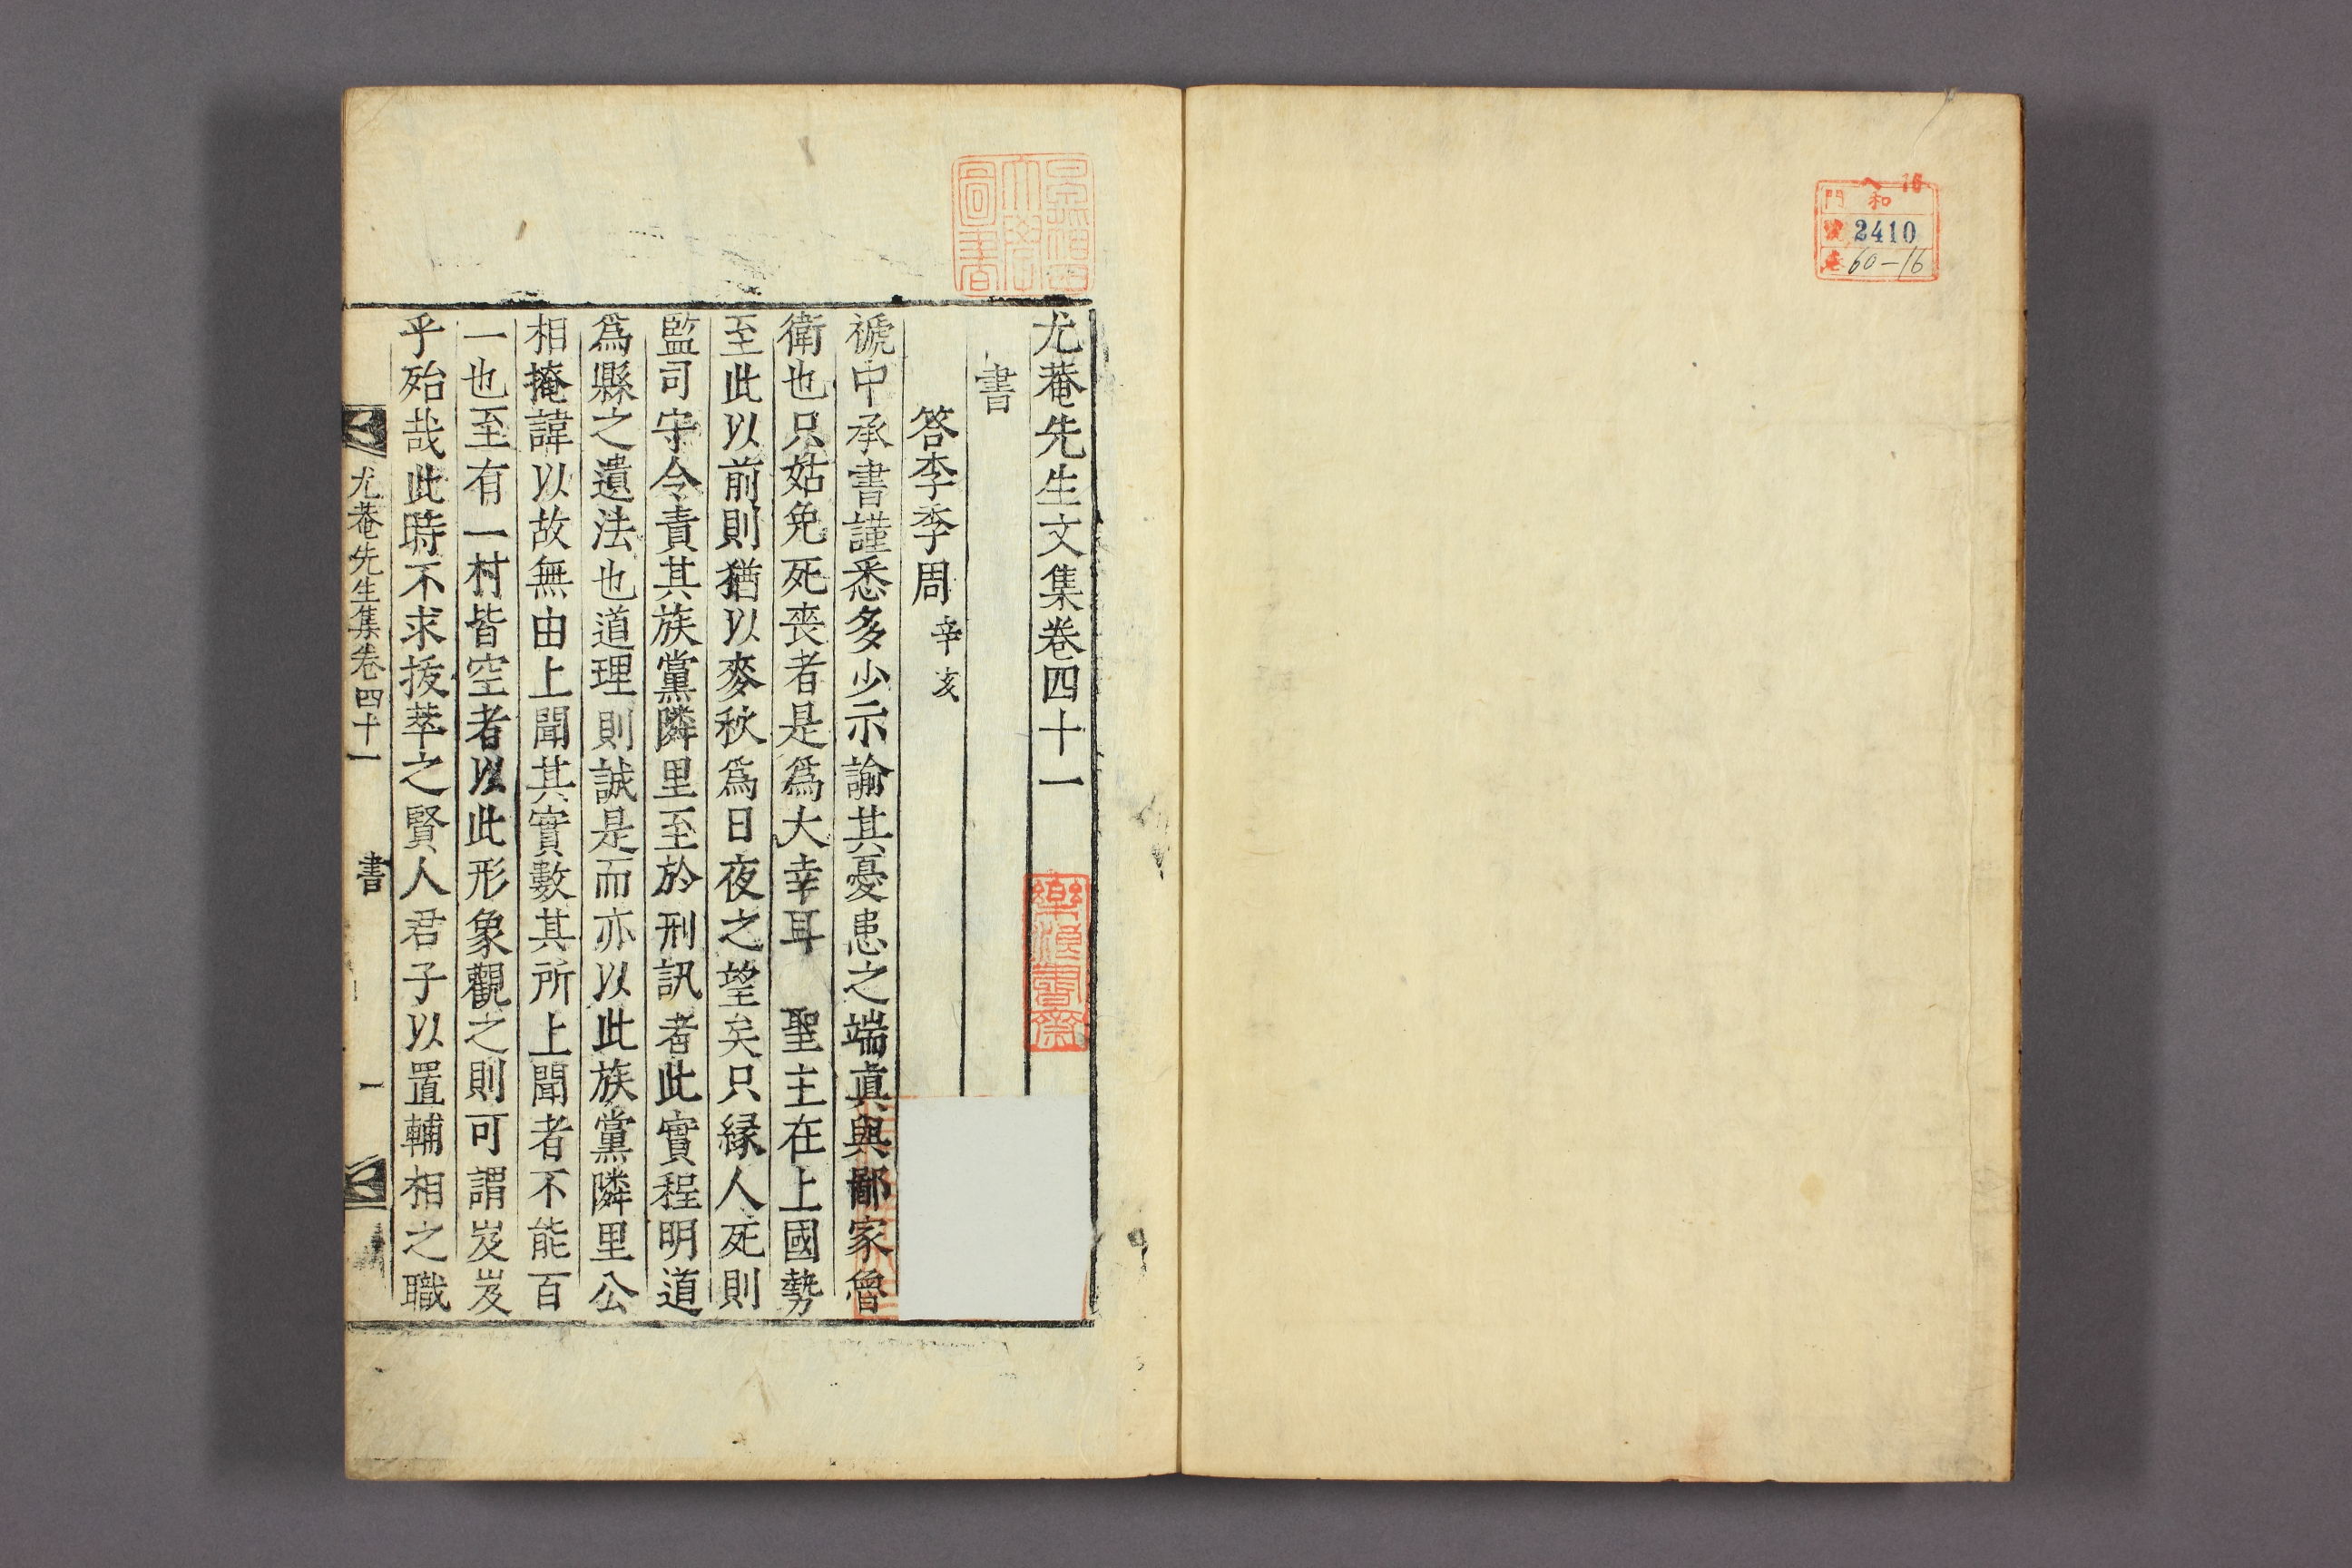 ヘ 16
門 和
號 2410
卷 60-16
早稲田
大學
圖書
尤菴先生文集卷四十一
樂浪書齋
書
答李季周 辛亥
褫中承書謹悉多少示諭其憂患之端眞與鄙家魯
衛也只姑免死喪者是爲大幸耳 聖主在上國勢
至此以前則猶以麥秋爲日夜之望矣只縁人死則
監司守令責其族黨隣里至於刑訊者此實程明道
爲縣之遺法也道理則誠是而亦以此族黨隣里公
相掩諱以故無由上聞其實數其所上聞者不能百
一也至有一村皆空者以此形象觀之則可謂岌岌
乎殆哉此時不求拔萃之賢人君子以置輔相之職
尤菴先生集卷四十一 書 一